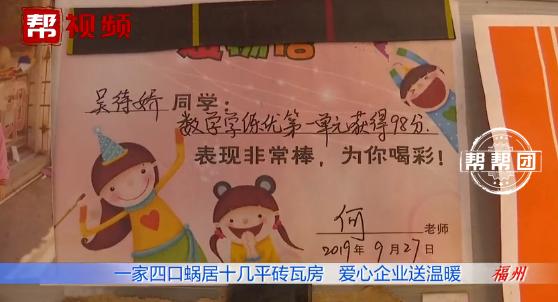 帮视频
吴锦娇同学：
数学学练优第一单元获得98分.
表现非常棒，为你喝彩！
帮帮团
何老师
2019年9月27日
一家四口蜗居十几平砖瓦房 爱心企业送温暖
福州